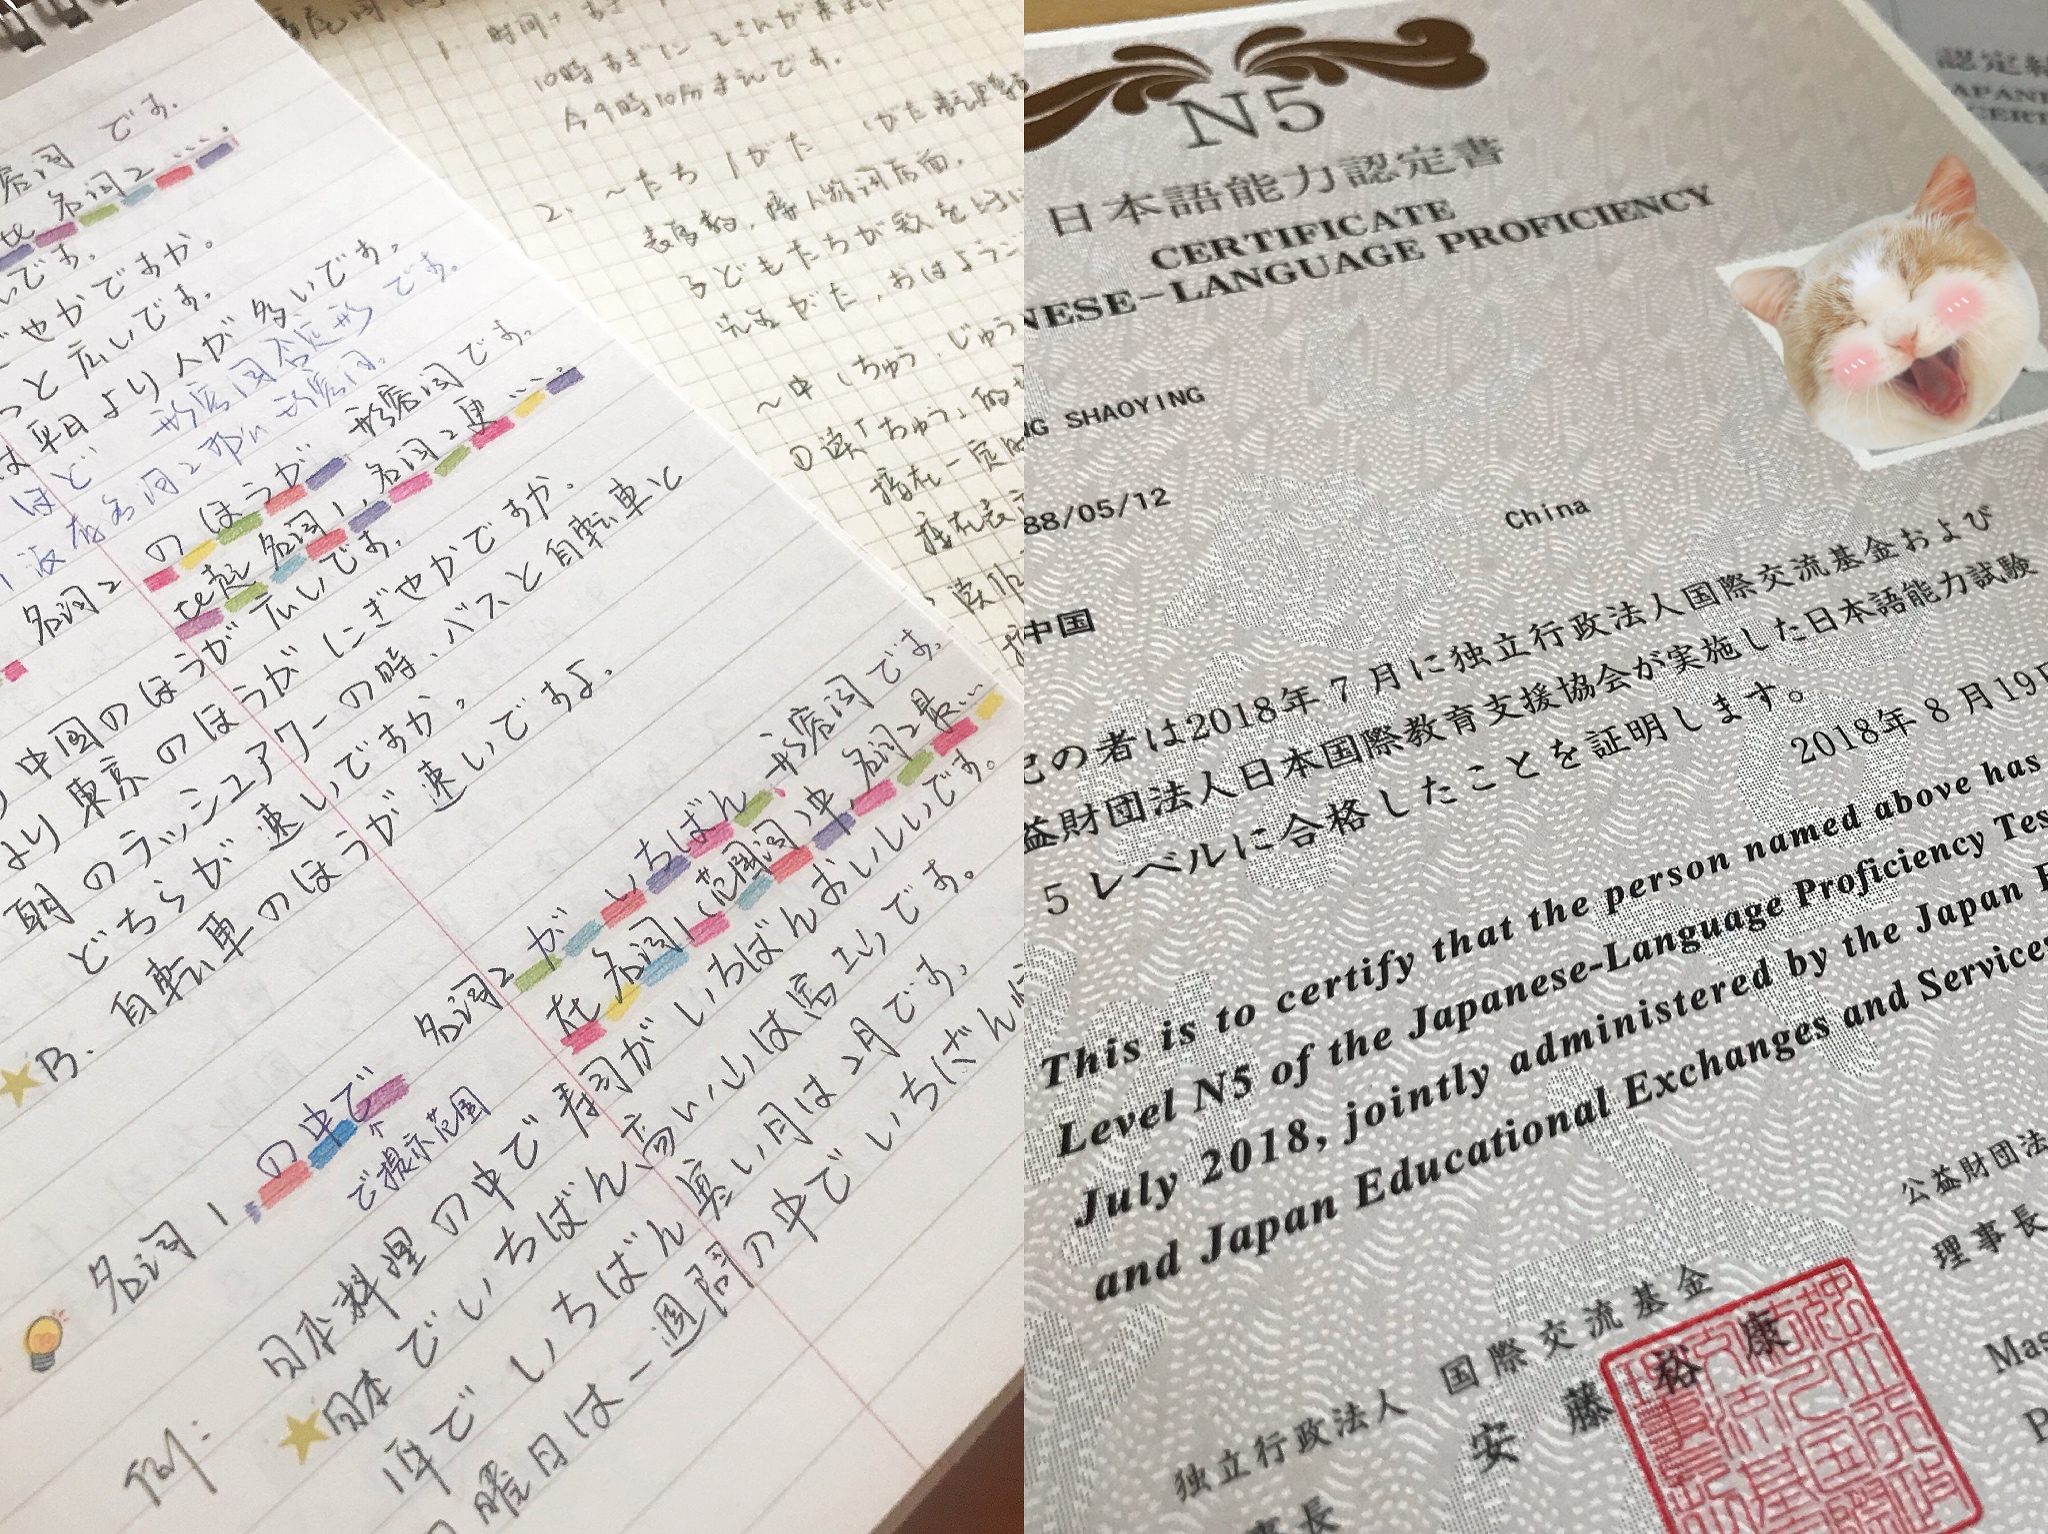 形容词 です。
比 名词2....
にぎやかですか。
っと 広いです。
は 平日 より 人が 多いです。
ほど 形容词否定形 です。
没有名词2那么形容词。
名词2 のほうが 形容词です。
比起名词1,名词2更....
中国のほうが 広いです。
より 東京 のほうが にぎやかですか。
朝 のラッシュアワーの時、バスと自転車と
どちらが 速いですか。
B. 自転車 のほうが 速いですよ。
名词1 の中で 名词2 が いちばん 形容词です。
在 名词1(范围词)中,名词2最...
で提示范围
例: 日本料理 の中で 寿司が いちばん おいしいです。
日本 で いちばん 高い 山は 富士山です。
1年で いちばん 寒い 月は 2月です。
曜日は 一週間の中で いちばん
1. 時間+
10時すぎに
今9時10分まえです。
2. ~たち/がた
表复数,接人称词后面。
子どもたちが歌を
先生がた、おはようご
~中(ちゅう、じゅう
①读「ちゅう」的
接在一定
接在表
N5
日本語能力認定書
CERTIFICATE
NESE-LANGUAGE PROFICIENCY
NG SHAOYING
88/05/12
中国 China
記の者は2018年7月に独立行政法人国際交流基金および
益財団法人日本国際教育支援協会が実施した日本語能力試験
5 レベルに合格したことを証明します。
2018年8月19日
This is to certify that the person named above has
Level N5 of the Japanese-Language Proficiency Tes
July 2018, jointly administered by the Japan F
and Japan Educational Exchanges and Services
独立行政法人 国際交流基金
事長 安藤裕康
公益財団法
理事長
Mas
P
認定結
JAPAN
CERT